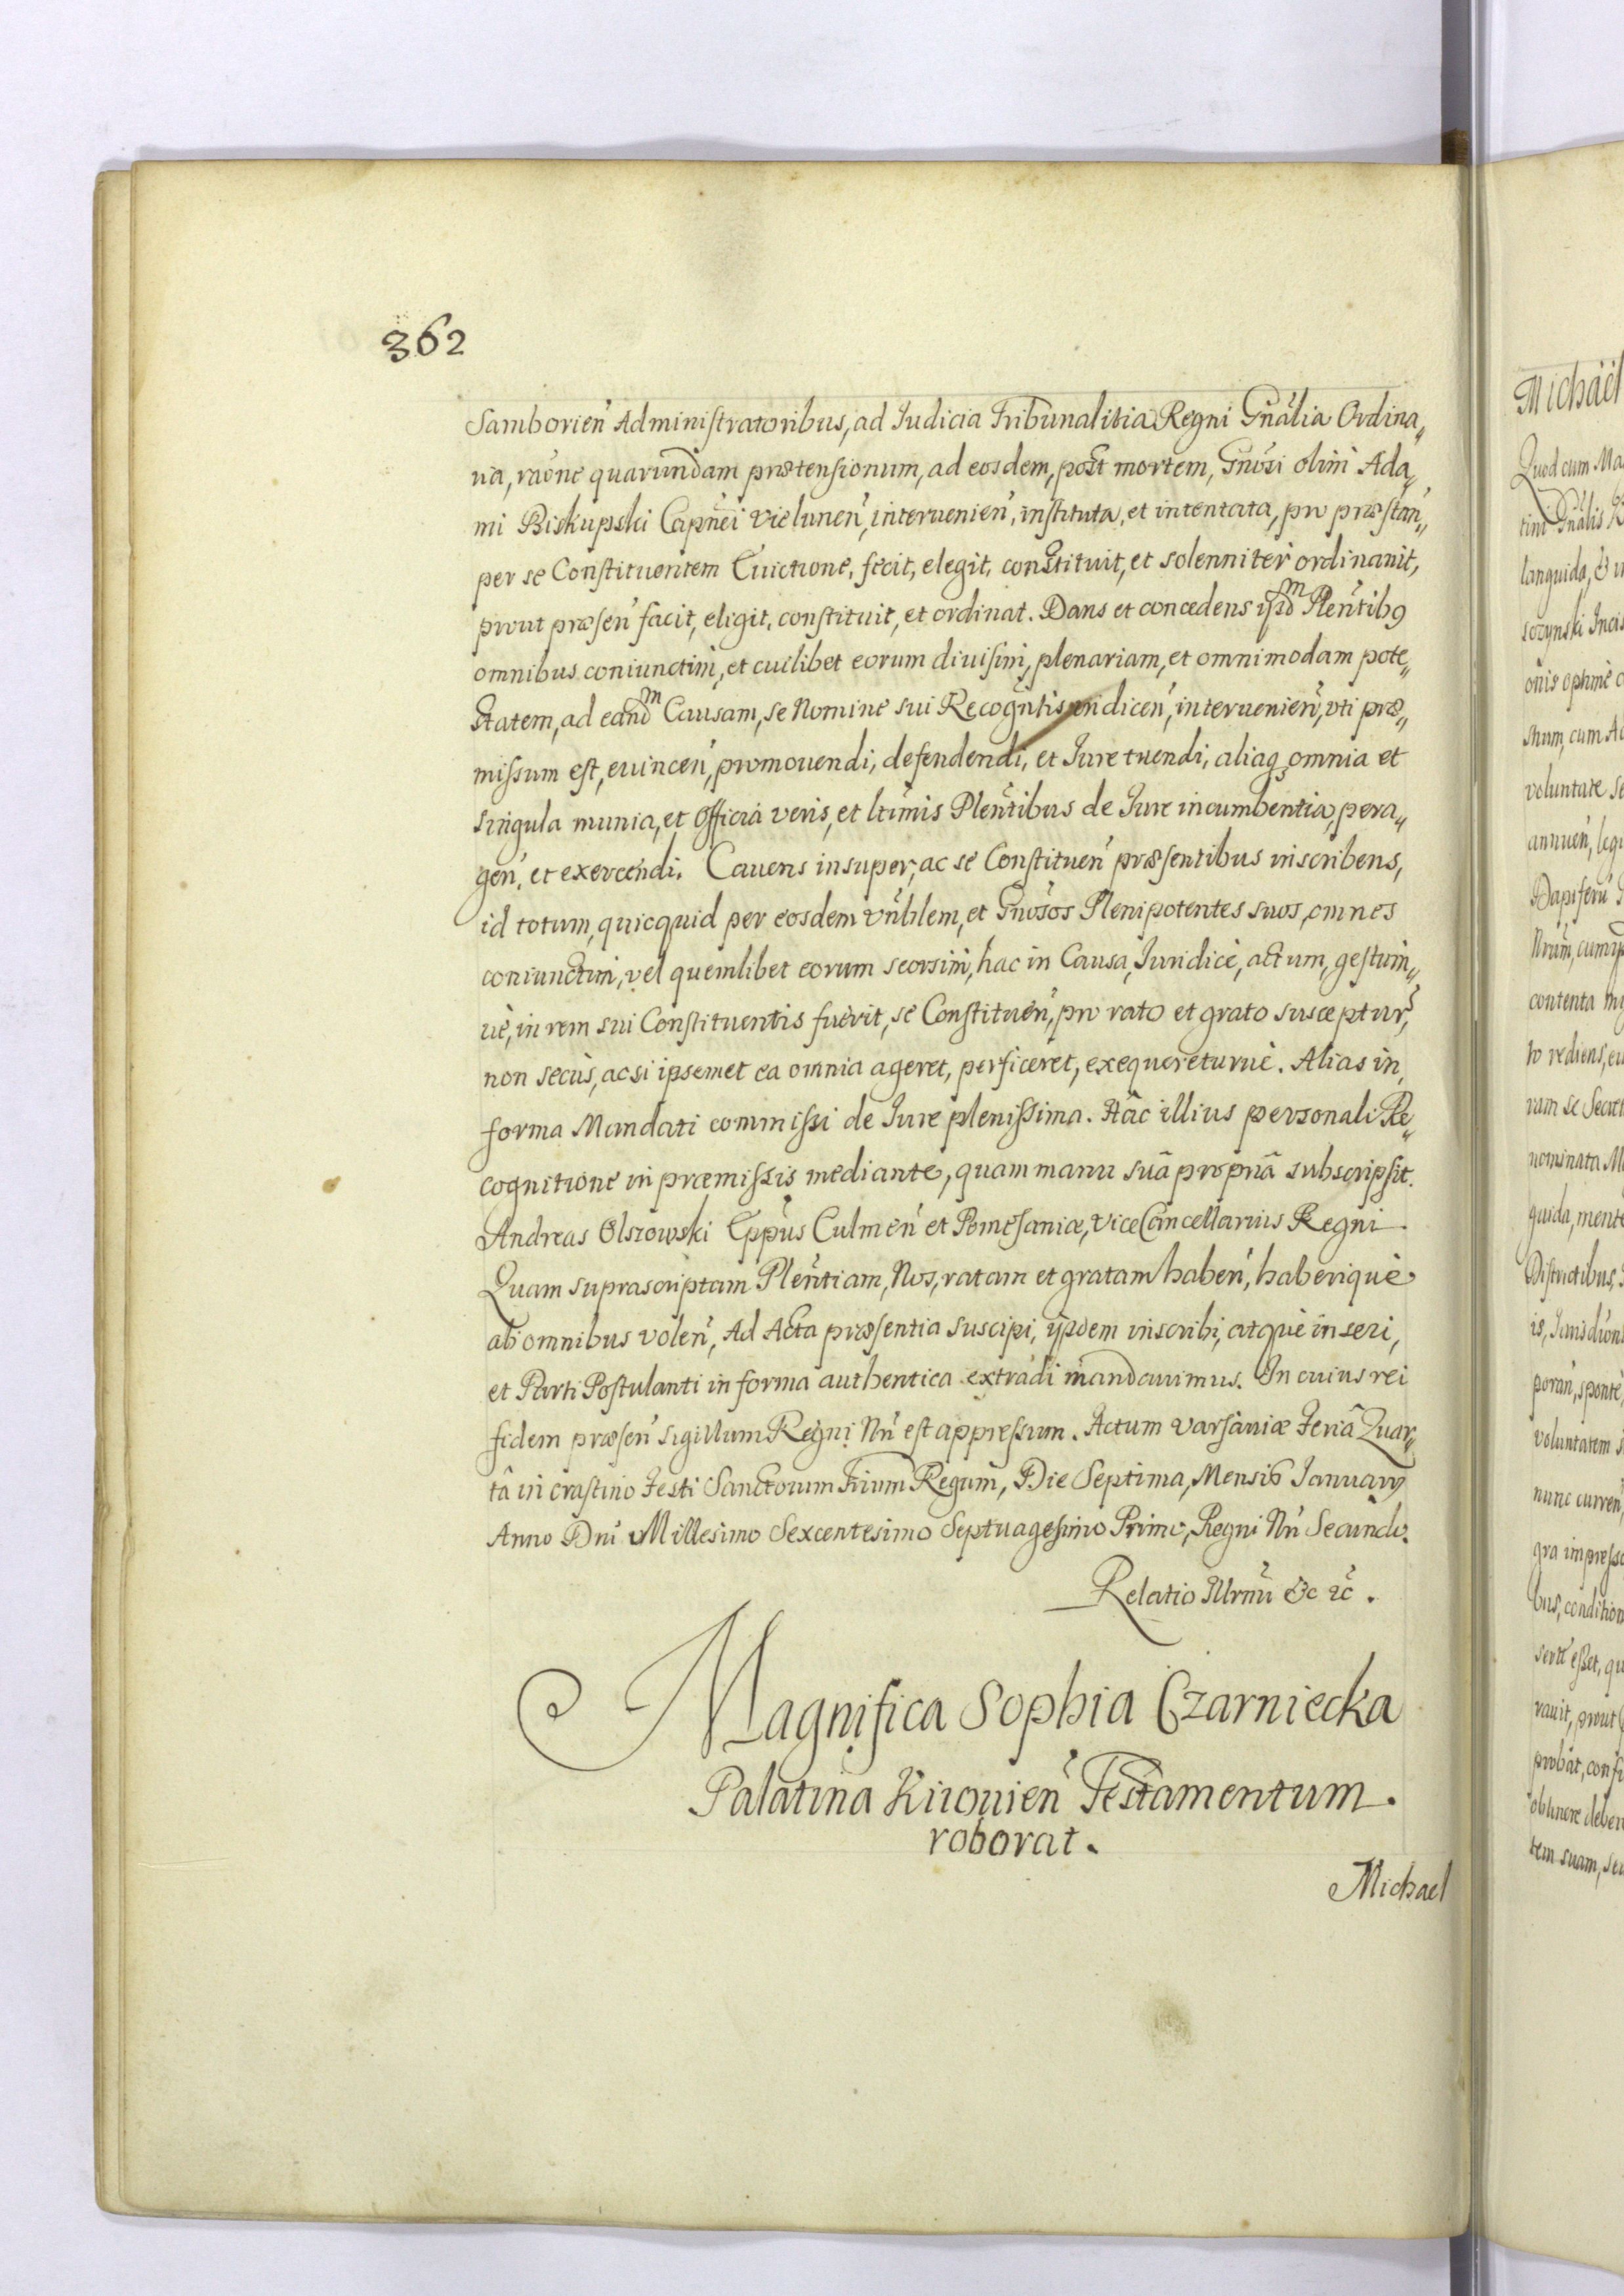 362
Samborien̄ Administratoribus, ad Judicia Tribunalitia Regni Gnālia Ordina„
ria, raōne quarundam prætensionum, ad eosdem, post mortem, Gnōsi olim Ada„
mi Biskupski Capn̄ei Vielunen̄, interuenien̄, instituta, et intentata, pro præstan̄„
per se Constituentem Euictione, fecit, elegit, constituit, et solenniter ordinauit,
prout præsen̄ facit, eligit, constituit, et ordinat. Dans et concedens ijsdm Plen̄tibꝰ
omnibus coniunctim, et cuilibet eorum diuisim, plenariam, et omnimodam pote„
statem, ad eandm Causam, se Nomine sui Recogn̄tis indicen̄, interuenien̄, vti præ„
missum est, euincen̄, promouendi, defendendi, et Jure tuendi, aliaq; omnia et
singula munia, et Officia veris, et ltīmis Plen̄tibus de Jure incumbentia, pera„
gen̄, et exercendi. Cauens insuper, ac se Constituen̄ præsentibus inscribens,
id totum, quicquid per eosdem Vn̄blem, et Gnōsos Plenipotentes suos, omnes
coniunctim, vel quemlibet eorum seorsim, hac in Causa, Juridicè, actum, gestum„
uè, in rem sui Constituentis fuerit, se Constituen̄, pro rato et grato susceptur̄,
non secùs, ac si ipsemet ea omnia ageret, perficeret, exequereturuè. Alias in
forma Mandati commissi de Jure plenissima. Hâc illius personali Re„
cognitione in præmissis mediante, quam manu suâ propriâ subscripsit.
Andreas Olszowski Epp̄us Culmen̄ et Pomesaniæ, ViceCancellarius Regni
Quam suprascriptam Plen̄tiam, Nos, ratam et gratam haben̄, haberiquè
ab omnibus volen̄, Ad Acta præsentia suscipi, ijsdem inscribi, atquè inseri,
et Parti Postulanti in forma authentica extradi mandauimus. In cuius rei
fidem præsen̄ Sigillum Regni Nr̄i est appressum. Actum Varsauiæ Feriâ Quar„
tâ in crastino Festi Sanctorum Trium Regum, Die Septima, Mensis Januarij
Anno Dn̄i Millesimo Sexcentesimo Septuagesimo Primo, Regni Nr̄i Secundo.
Relatio Illrmī &c ꝛc.
Magnifica Sophia Czarniecka
Palatina Kiiouien̄ Testamentum
roborat.
Michael
Michaël
Quod cum Ma
tini Gnālis
languida, & 
sozynski
ōnis optimè
cum
voluntate
annuen̄,
Dapiferū
Nrūm,
contenta
to rediens,
ram se
nominata
guida, mente
Districtibus,
is,
poran̄, sponte,
voluntatem
nunc curren̄
gra
bus, condition
esset,
rauit, prout
probat, confi
obtinere deber
tem suam,